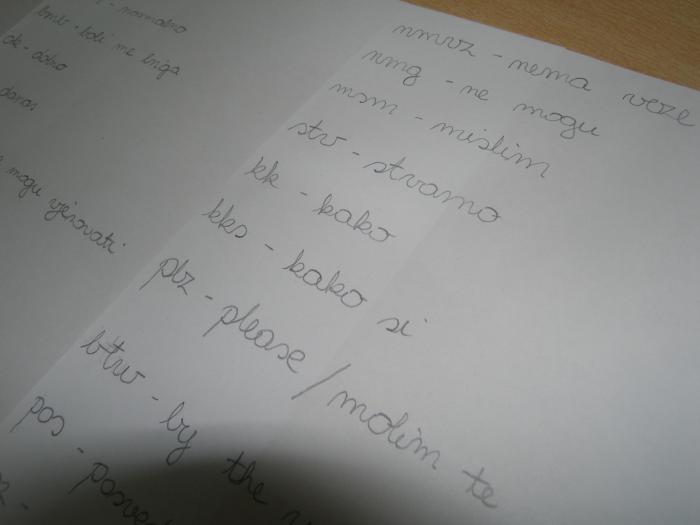 - normalno
bmb - boli me briga
ok - dobro
danas
mogu vjerovati
nmvz - nema veze
nmg - ne mogu
msm - mislim
stv - stvarno
kk - kako
kks - kako si
plz - please / molim te
btw - by the
pos -